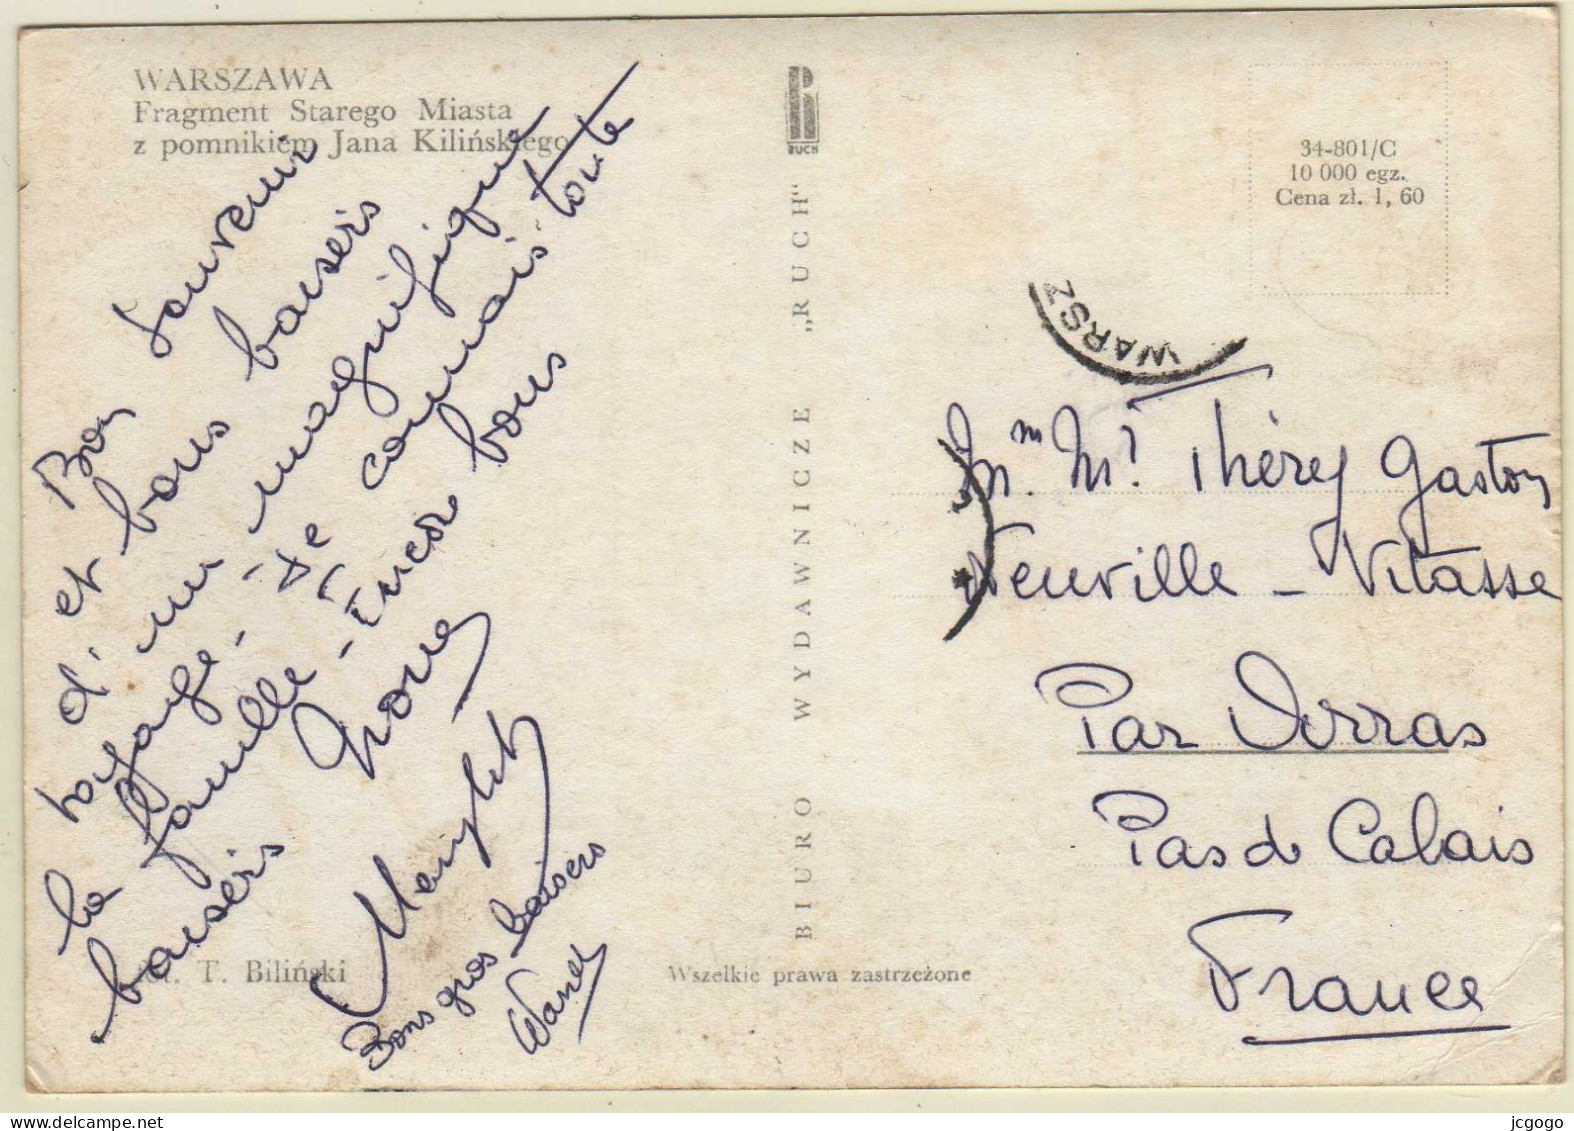 WARSZAWA
Fragment Starego Miasta
z pomnikiem Jana Kilińskiego
Bon souvenir
et bons baisers
d'un magnifique
voyage - Je connais toute
la famille - Encore bons
baisers
Bons gros baisers
Wanda
T. Biliński
RUCH
BIURO WYDAWNICZE „RUCH"
Wszelkie prawa zastrzeżone
34-801/C
10 000 egz.
Cena zł. 1,60
WARSZ
Mm. Mr Théry Gaston
Neuville - Vitasse
Par Arras
Pas de Calais
France
hipostcard.com
jcgogo